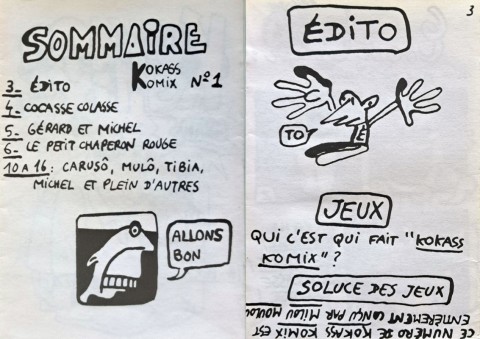 SOMMAIRE
KOKASS
KOMIX Nº1
3_ ÉDITO
4_ COCASSE COLASSE
5_ GÉRARD ET MICHEL
6_ LE PETIT CHAPERON ROUGE
10 A 16 : CARUSÔ, MULÔ, TIBIA,
MICHEL ET PLEIN D'AUTRES
ALLONS
BON
3
ÉDITO
TO
É
JEUX
QUI C'EST QUI FAIT "KOKASS
KOMIX" ?
SOLUCE DES JEUX
CE NUMÉRO DE KOKASS KOMIX EST
ENTIÈREMENT CONÇU PAR MILOU MOULOU